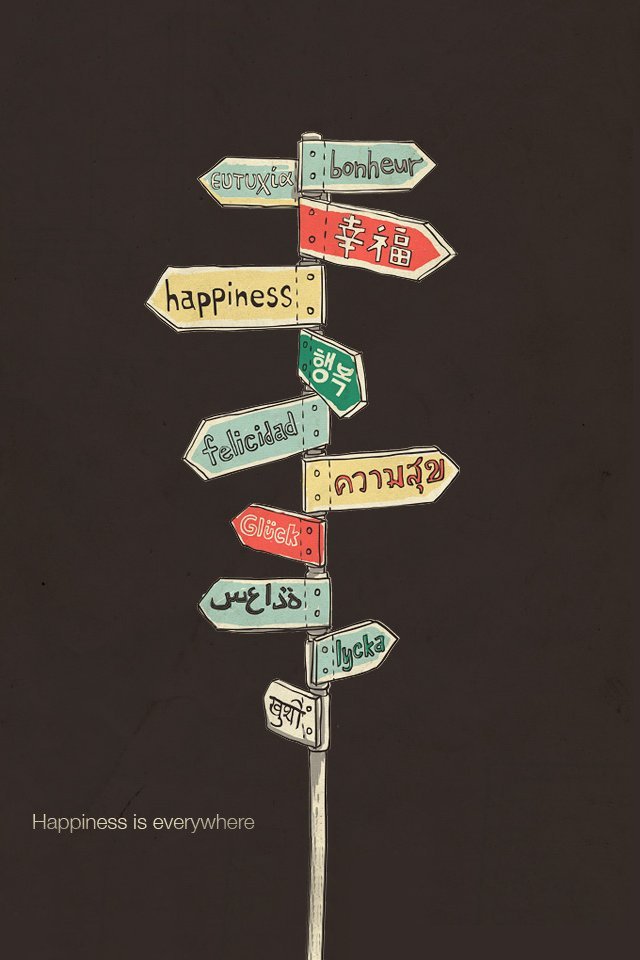 ευτυχία
bonheur
幸福
happiness
행복
felicidad
ความสุข
Glück
ةداعس
lycka
खुशी
Happiness is everywhere